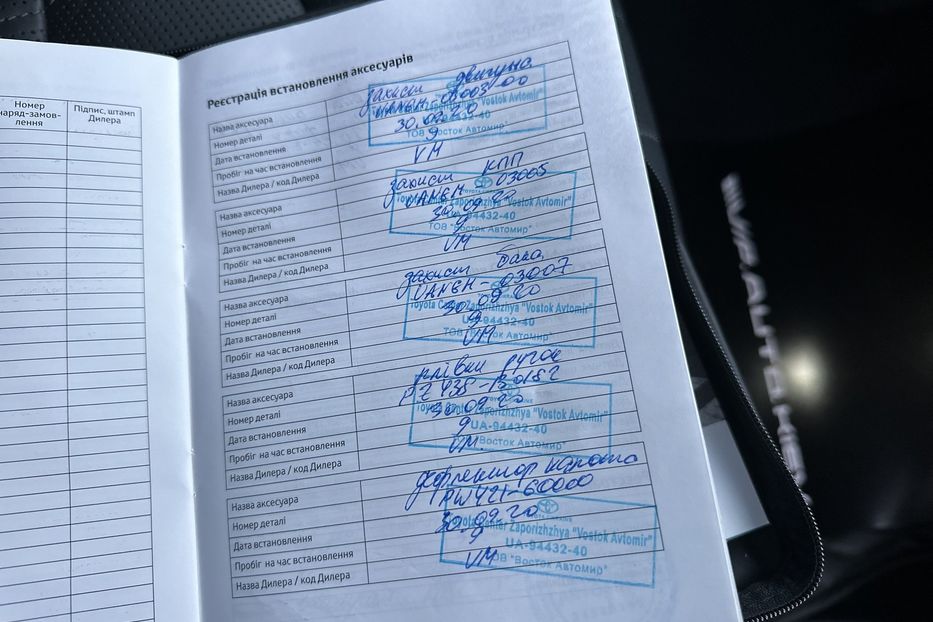 Номер
наряд-замов-
лення
Підпис, штамп
Дилера
Реєстрація встановлення аксесуарів
Назва аксесуара захист двигуна
Номер деталі UANGH-03003-00
Дата встановлення 30.09.20
Пробіг на час встановлення 9
Назва Дилера / код Дилера VM
Toyota Center Zaporizhzhya "Vostok Avtomir"
UA-94432-40
ТОВ "Восток Автомир"
Назва аксесуара захист КПП
Номер деталі UANGH-03005
Дата встановлення 30.09.20
Пробіг на час встановлення 9
Назва Дилера / код Дилера VM
Toyota Center Zaporizhzhya "Vostok Avtomir"
UA-94432-40
ТОВ "Восток Автомир"
Назва аксесуара захист бака
Номер деталі UANGH-03007
Дата встановлення 30.09.20
Пробіг на час встановлення 9
Назва Дилера / код Дилера VM
Toyota Center Zaporizhzhya "Vostok Avtomir"
UA-94432-40
ТОВ "Восток Автомир"
Назва аксесуара плівки ручок
Номер деталі
Дата встановлення 30.09.20
Пробіг на час встановлення 9
Назва Дилера / код Дилера VM
Toyota Center Zaporizhzhya "Vostok Avtomir"
UA-94432-40
"Восток Автомир"
Назва аксесуара дефлектор капота
Номер деталі PW421-60000
Дата встановлення 30.09.20
Пробіг на час встановлення 9
Назва Дилера / код Дилера VM
Toyota Center Zaporizhzhya "Vostok Avtomir"
UA-94432-40
ТОВ "Восток Автомир"